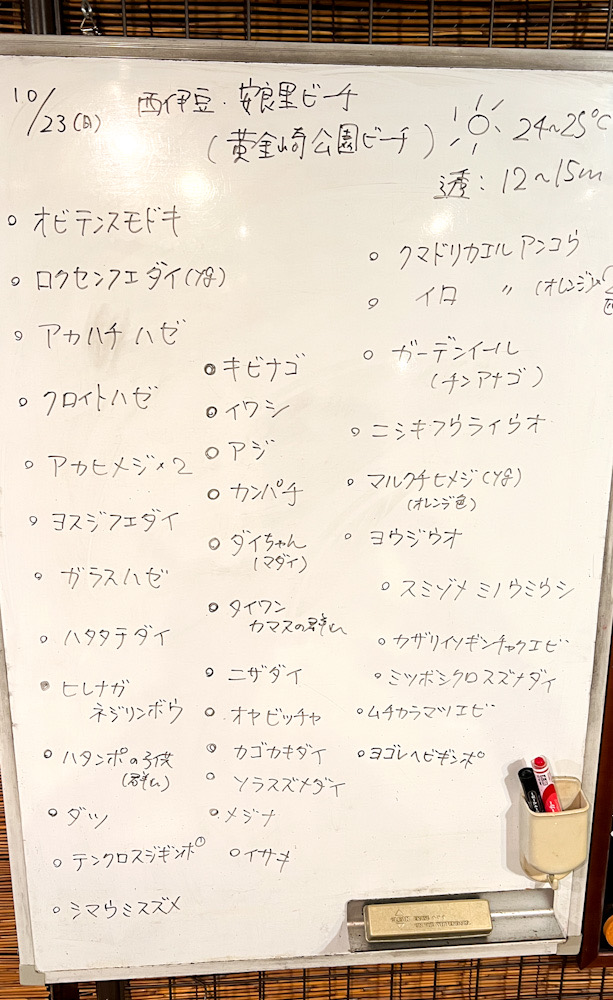 10/23(日) 西伊豆・安良里ビーチ
(黄金崎公園ビーチ)
24~25℃
透:12~15m
○ オビテンスモドキ
○ ロクセンフエダイ(yg)
○ アカハチハゼ
○ クロイトハゼ
○ アカヒメジ×2
○ ヨスジフエダイ
○ ガラスハゼ
○ ハタタテダイ
○ ヒレナガ
ネジリンボウ
○ ハタンポの子供
(群れ)
○ ダツ
○ テンクロスジギンポ
○ シマウミスズメ
○ キビナゴ
○ イワシ
○ アジ
○ カンパチ
○ ダイちゃん
(マダイ)
○ タイワン
カマスの群れ
○ ニザダイ
○ オヤビッチャ
○ カゴカキダイ
○ ソラスズメダイ
○ メジナ
○ イサキ
○ クマドリカエルアンコウ
○ イロ 〃 (オレンジ)×2
○ ガーデンイール
(チンアナゴ)
○ ニシキフウライウオ
○ マルクチヒメジ(yg)
(オレンジ色)
○ ヨウジウオ
○ スミゾメミノウミウシ
○ カザリイソギンチャクエビ
○ ミツボシクロスズメダイ
○ ムチカラマツエビ
○ ヨゴレヘビギンポ